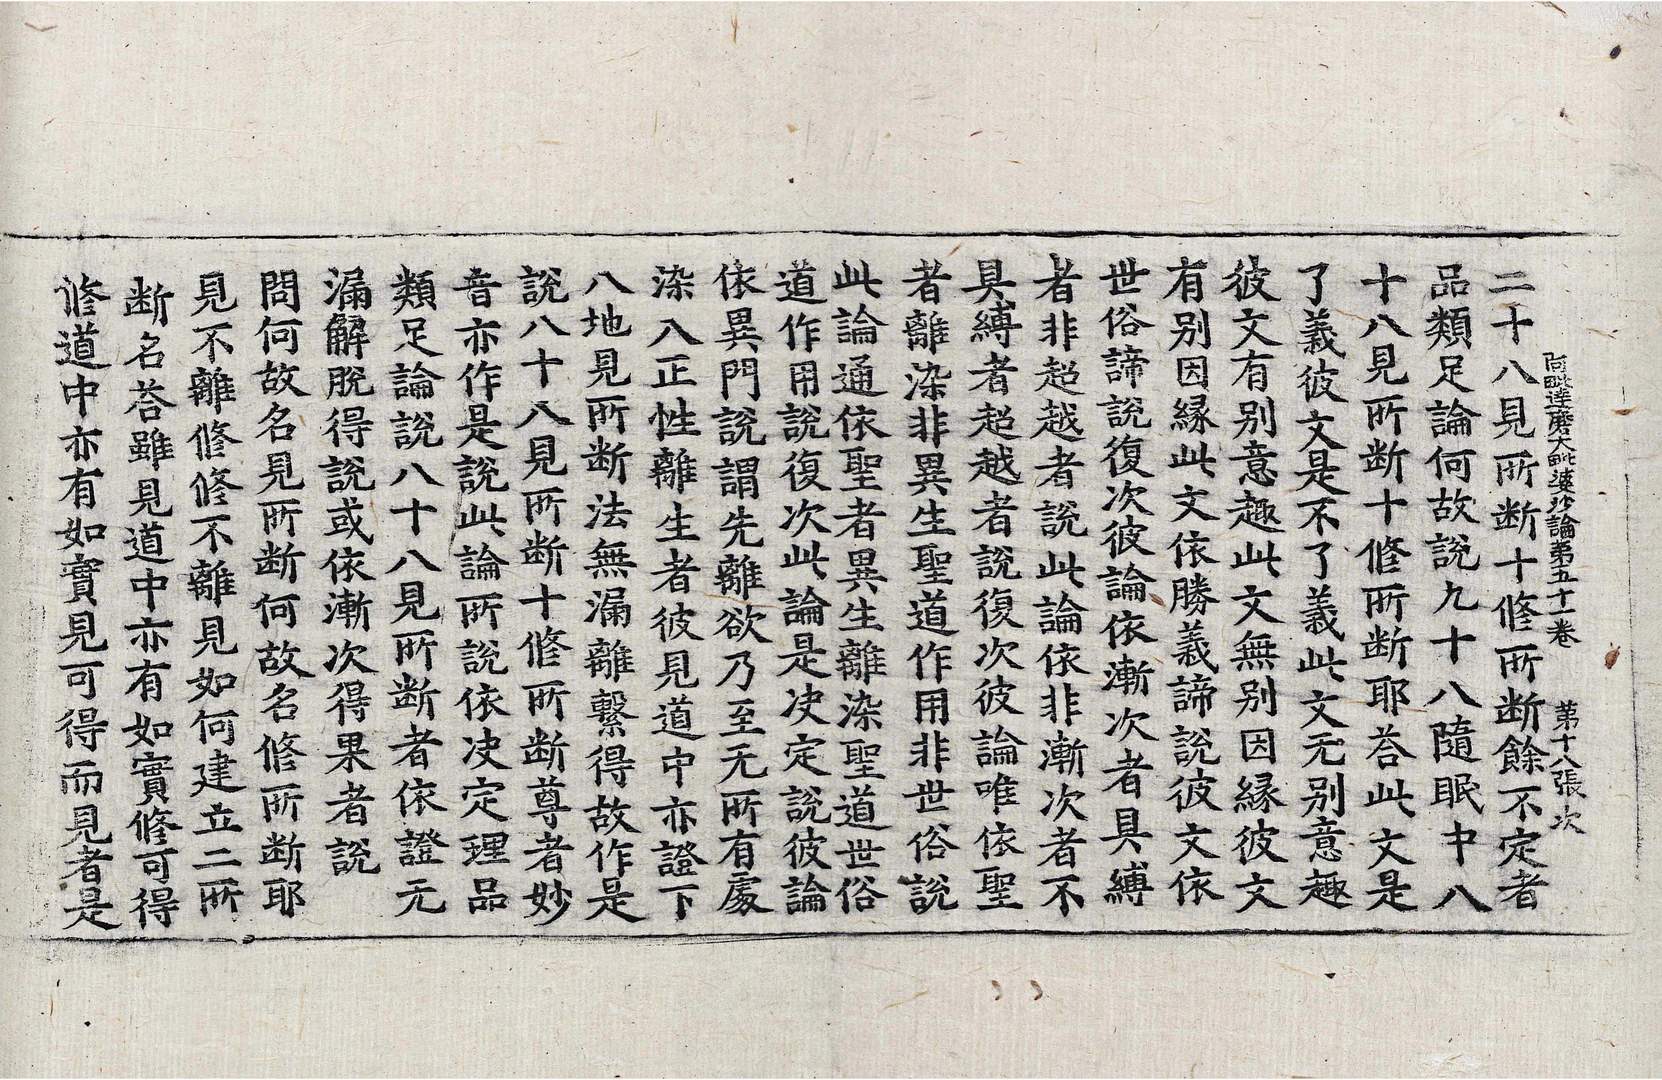 阿毗達磨大毗婆沙論第五十一卷　第十八張　次
二十八見所断十修所断餘不定者
品類足論何故說九十八隨眠中八
十八見所断十修所断耶荅此文是
了義彼文是不了義此文无别意趣
彼文有别意趣此文無别因縁彼文
有别因縁此文依勝義諦說彼文依
世俗諦說復次彼論依漸次者具縛
者非超越者說此論依非漸次者不
具縛者超越者說復次彼論唯依聖
者離染非異生聖道作用非世俗說
此論通依聖者異生離染聖道世俗
道作用說復次此論是决定說彼論
依異門說謂先離欲乃至无所有處
染入正性離生者彼見道中亦證下
八地見所断法無漏離繫得故作是
說八十八見所断十修所断尊者妙
音亦作是說此論所說依决定理品
類足論說八十八見所断者依證元
漏解脫得說或依漸次得果者說
問何故名見所断何故名修所断耶
見不離修修不離見如何建立二所
断名荅雖見道中亦有如實修可得
修道中亦有如實見可得而見者是